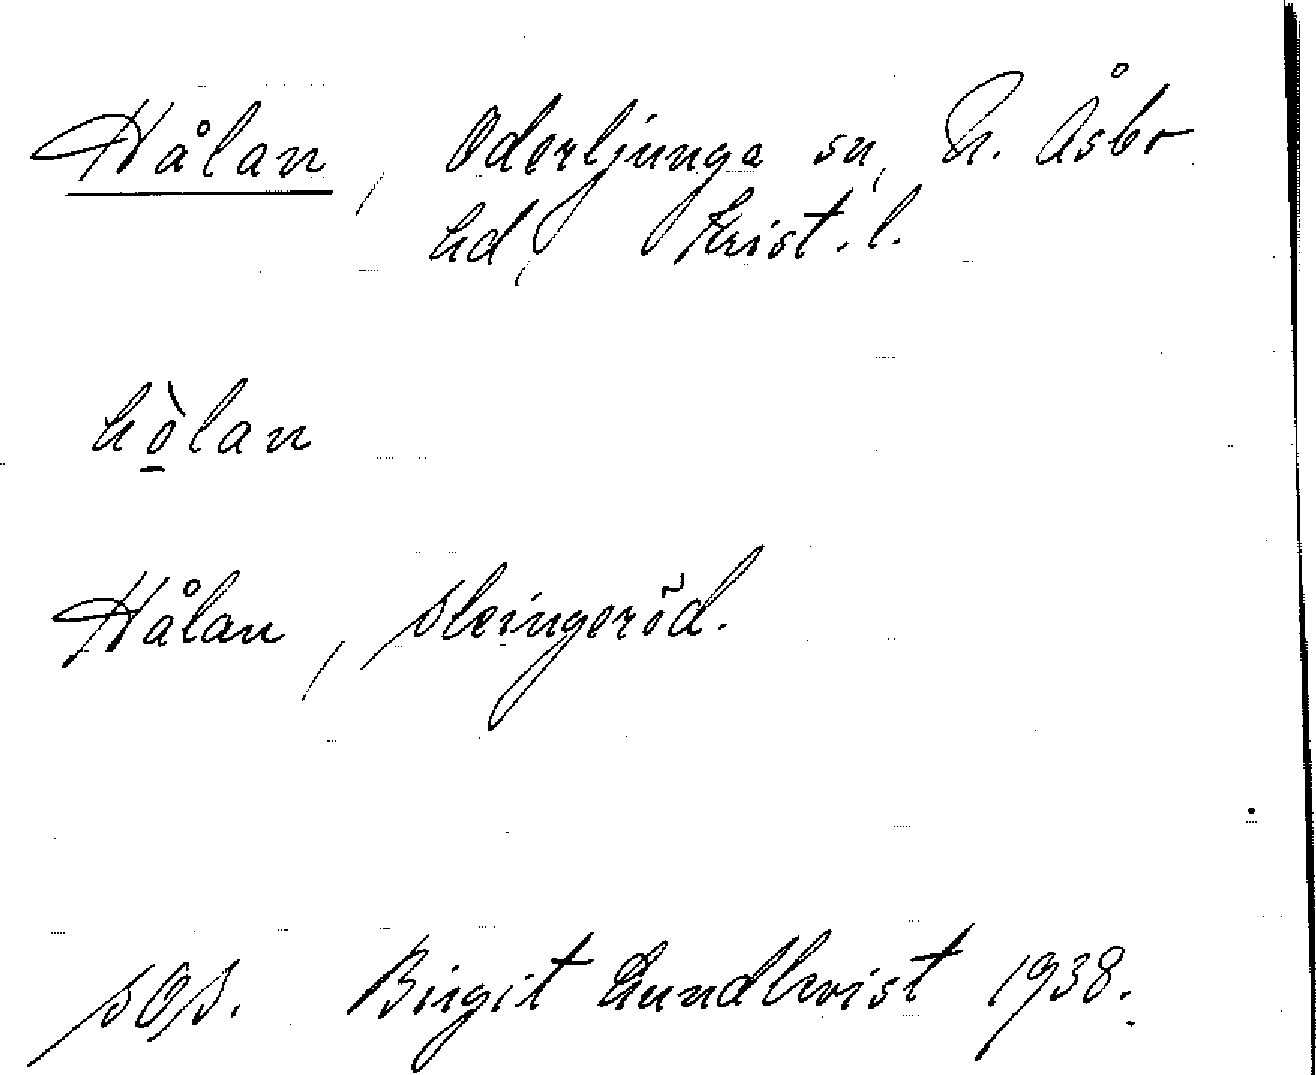 Hålan, Oderljunga sn, N. Åsbo
hd, Krist. l.
hò̱lan
Hålan,
sOs. Birgit Lundkvist 1938.